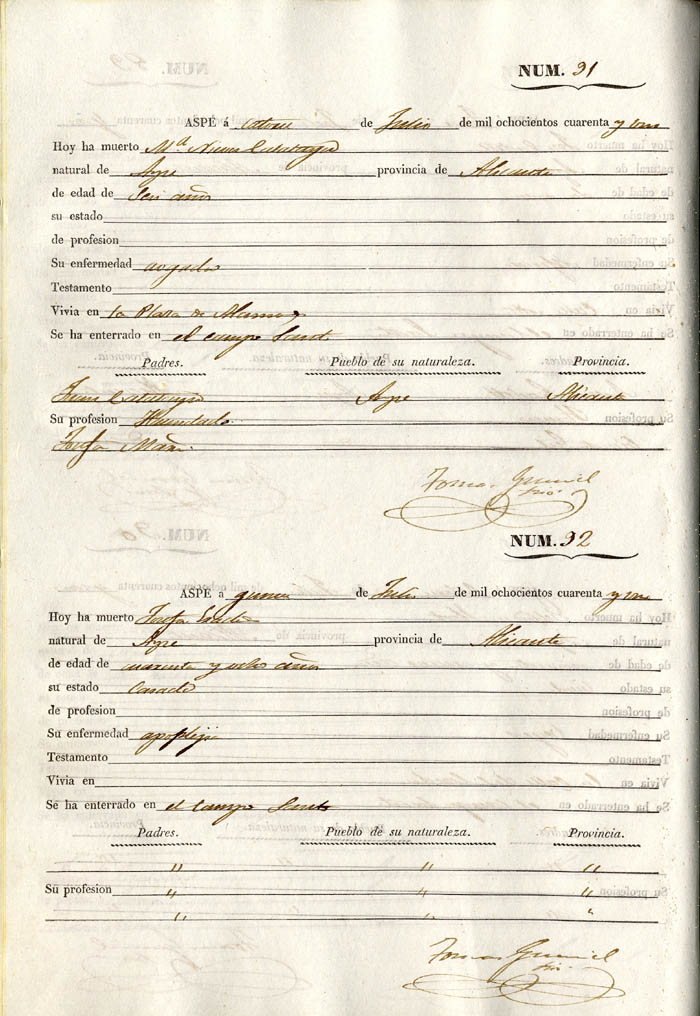 NUM. 91
ASPE á catorce de Julio de mil ochocientos cuarenta y uno
Hoy ha muerto Mª Nieves Calatayu
natural de Aspe provincia de Alicante
de edad de seis años
su estado
de profesion
Su enfermedad aogada
Testamento
Vivia en la Plaza de
Se ha enterrado en el campo Santo
Padres. Pueblo de su naturaleza. Provincia.
Calatayu Aspe Alicante
Su profesion
Josefa
Tomas
NUM. 92
ASPE a quince de Julio de mil ochocientos cuarenta y uno
Hoy ha muerto Josefa
natural de Aspe provincia de Alicante
de edad de cuarenta y ocho años
su estado Casada
de profesion
Su enfermedad
Testamento
Vivia en
Se ha enterrado en el Campo Santo
Padres. Pueblo de su naturaleza. Provincia.
" " "
Su profesion " " "
" " "
Tomas